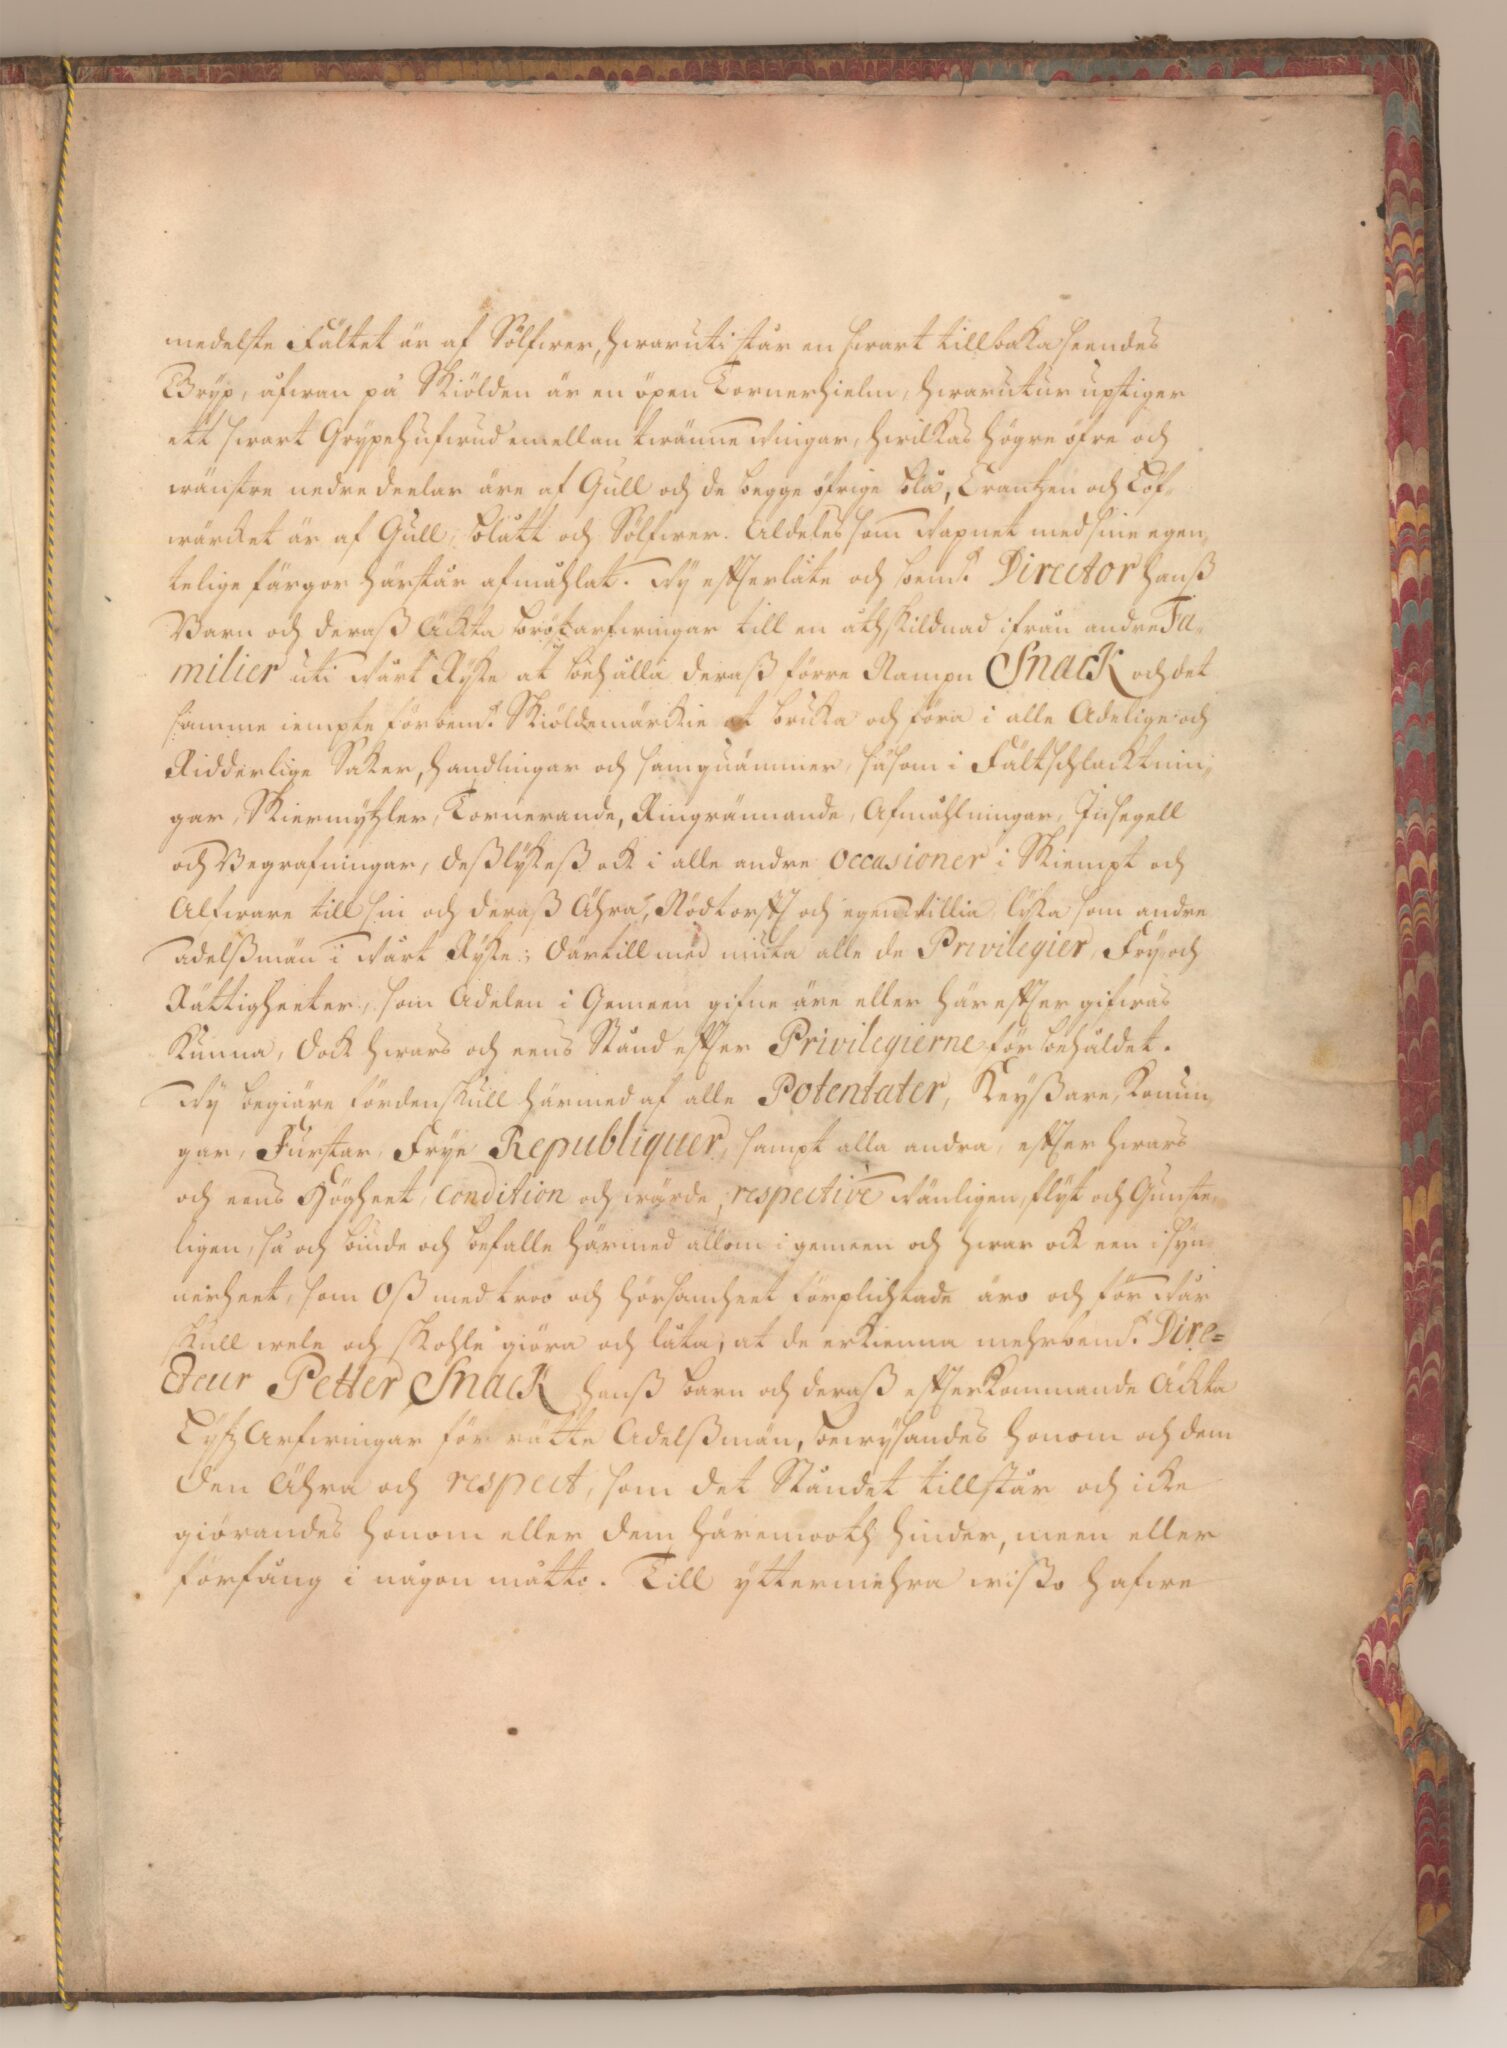 medelste Fältet är af Sölfwer, hwaruti står en swart tillbaka seendes
Gryp, åfwan på Skiölden är en öpen Tornerhielm, hwarutur upstiger
ett swart Grypehufwud emellan twänne Wingar, hwilkas högre öfre och
wänstre nedre deelar äre af Gull och de begge öfrige blå, Crantzen och Löf-
wärcket är af Gull, blått och Sölfwer. Aldeles som Wapnet med sine egen-
telige färgor härstår afmåhlat. Wy effterlåte och bem:te Director hanß
Barn och deraß Äckta bröstarfwingar till en åthskildnad ifrån andre Fa-
milier uti Wårt Ryke at behålla deraß förre Nampn Snack och det
samme iempte förbem:te Skiöldemärckie at bruka och föra i alle Adelige och
Ridderlige Saker, handlingar och samquämmer, såsom i Fältschlacktnin-
gar, Skiermytzler, Tornerande, Ringrännande, Afmåhlningar, Insegell
och Begrafningar, deßlykeß ock i alle andre occasioner i Skiempt och
Alfware till sin och deraß Ähra, Nödtorfft och egen Willia, lyka som andre
adelßmän i Wårt Ryke; Därtill med niuta alle de Privilegier, Fry- och
Rättigheeter, som Adelen i Gemeen gifne äre eller här effter gifwas
kunna, dock hwars och eens Stånd effter Privilegierne förbehåldet.
Wy begiäre fördenskull härmed af alle Potentater, Keyßare, Konun-
gar, Furstar, Frye Republiquer, sampt alla andra, effter hwars
och eens Högheet, condition och wärde, respective Wänligen, flyt och Gunste-
ligen, så och biude och befalle härmed allom i gemeen och hwar ock een i syn-
nerheet, som Oß med troo och hörsamheet förplichtade äro och för Wår
skull wele och skohle giöra och låta, at de erkienna mehrbem:te Dire=
cteur Petter Snack hanß barn och deraß effterkommande Äckta
Lyfz Arfwingar för rätte Adelßmän, bewysandes honom och dem
den Ähra och respect, som det Ståndet tillstår och icke
giörandes honom eller dem häremooth hinder, meen eller
förfång i någon måtto. Till yttermehra wißo hafwe